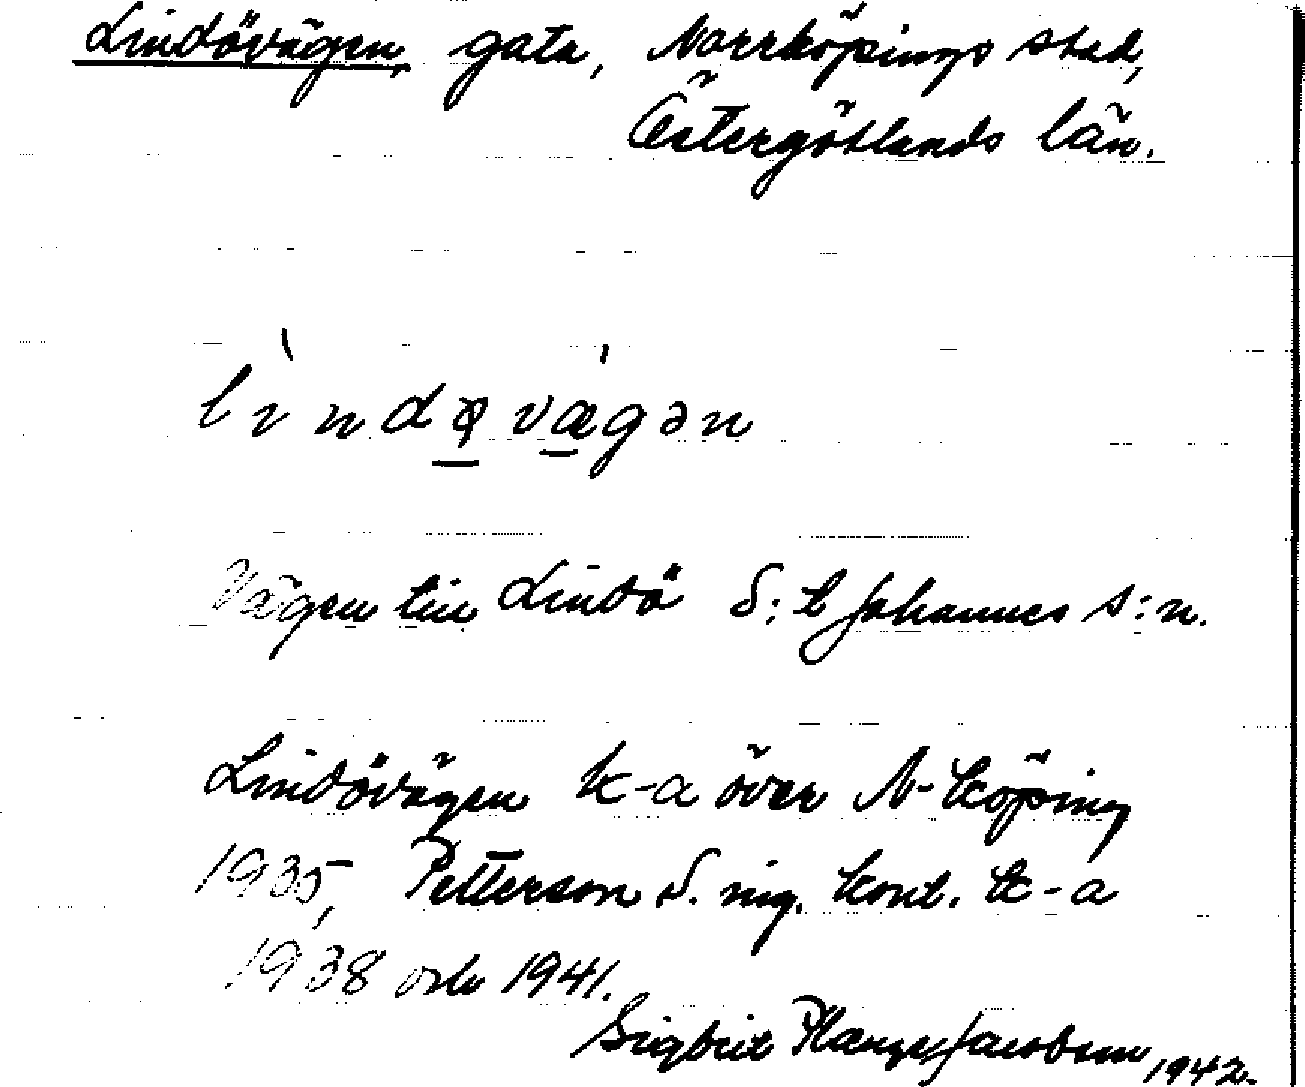 Lindövägen, gata, Norrköpings stad,
Östergötlands län.
lìndø̱vǽ̱gən
Vägen till Lindö S:t Johannes s:n.
Lindövägen k-a över N-köping
1935, Petterson S. ing. kont. k-a
1938 och 1941.
Sigbrit Plænge Jacobson 1942.